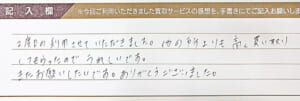 記入欄 ※今回ご利用いただきました買取サービスの感想を、手書きにてご記入お願いしま
2度目の利用させていただきました。他の所よりも高く買い取り
してもらったのでうれしいです。
またお願いしたいです。ありがとうございました。